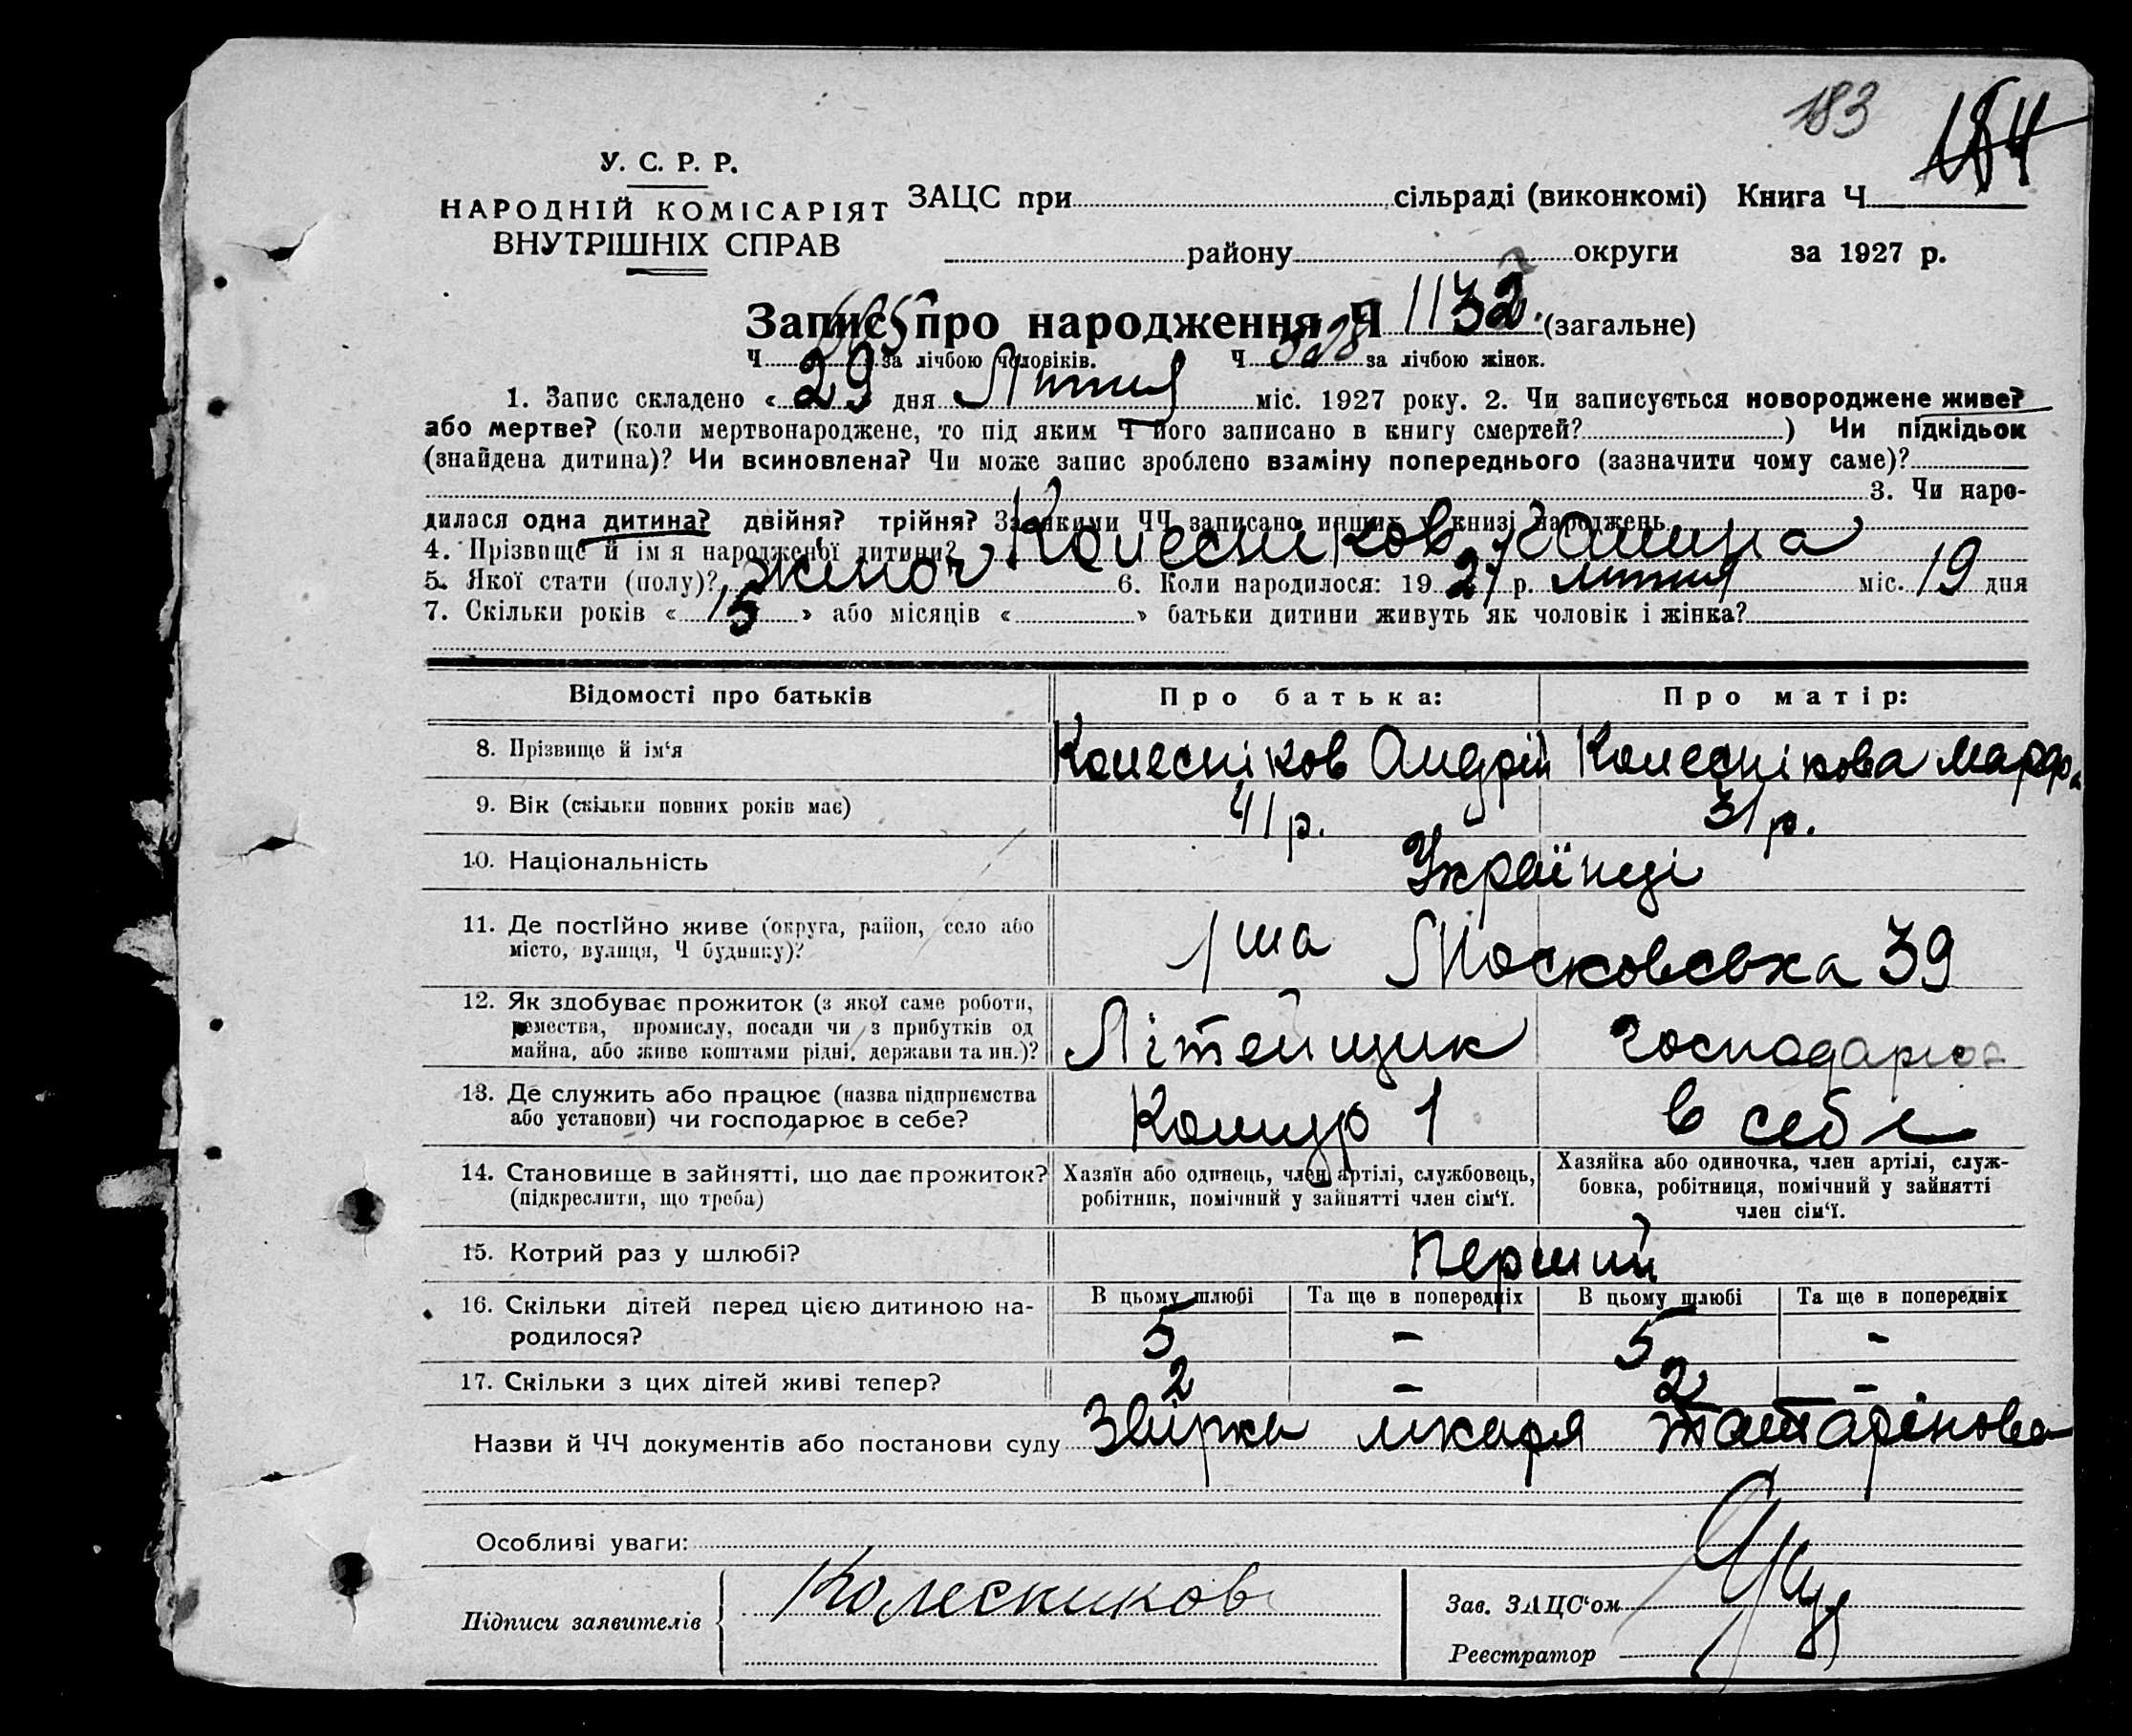 183
184
У. С. Р. Р.
НАРОДНІЙ КОМІСАРІЯТ
ВНУТРІШНІХ СПРАВ
ЗАЦС при сільраді (виконкомі) Книга Ч
району округи за 1927 р.
Запис про народження Ч 1132 (загальне)
Ч за лічбою чоловіків. Ч за лічбою жінок.
1. Запис складено « 29 дня Липня міс. 1927 року. 2. Чи записується новороджене живе?
або мертве? (коли мертвонароджене, то під яким Ч його записано в книгу смертей? ) Чи підкідьок
(знайдена дитина)? Чи всиновлена? Чи може запис зроблено взаміну попереднього (зазначити чому саме)?
3. Чи наро-
дилася одна дитина? двійня? трійня? За якими ЧЧ записано инших у книзі народжень
4. Прізвище й ім'я народженої дитини? Колеснікова Галина
5. Якої стати (полу)? жіноч 6. Коли народилося: 19 27 р. липня міс. 19 дня
7. Скільки років « 15 » або місяців « » батьки дитини живуть як чоловік і жінка?
Відомості про батьків Про батька: Про матір:
8. Прізвище й ім'я Колесніков Андрій Колеснікова Марфа
9. Вік (скільки повних років має) 41 р. 31 р.
10. Національність Українці
11. Де постійно живе (округа, район, село або
місто, вулиця, Ч будинку)? 1ша Московська 39
12. Як здобуває прожиток (з якої саме роботи,
ремества, промислу, посади чи з прибутків од
майна, або живе коштами рідні, держави та ин.)? Літейщик господарює
13. Де служить або працює (назва підприємства
або установи) чи господарює в себе? 1 в себе
14. Становище в зайнятті, що дає прожиток?
(підкреслити, що треба)
Хазяїн або одинець, член артілі, службовець,
робітник, помічний у зайнятті член сім'ї.
Хазяйка або одиночка, член артілі, служ-
бовка, робітниця, помічний у зайнятті
член сім'ї.
15. Котрий раз у шлюбі? Перший
16. Скільки дітей перед цією дитиною на-
родилося?
В цьому шлюбі Та ще в попередніх В цьому шлюбі Та ще в попередніх
5 - 5 -
17. Скільки з цих дітей живі тепер? 2 - 2 -
Назви й ЧЧ документів або постанови суду Звірка лікаря Татарінова
Особливі уваги:
Підписи заявителів Колесников
Зав. ЗАЦС'ом
Реєстратор